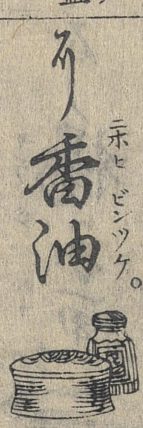 香油
ニホヒ ビンツケ。